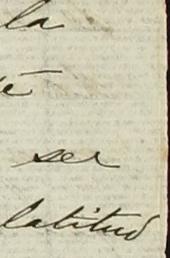 la
é
ser
latitud